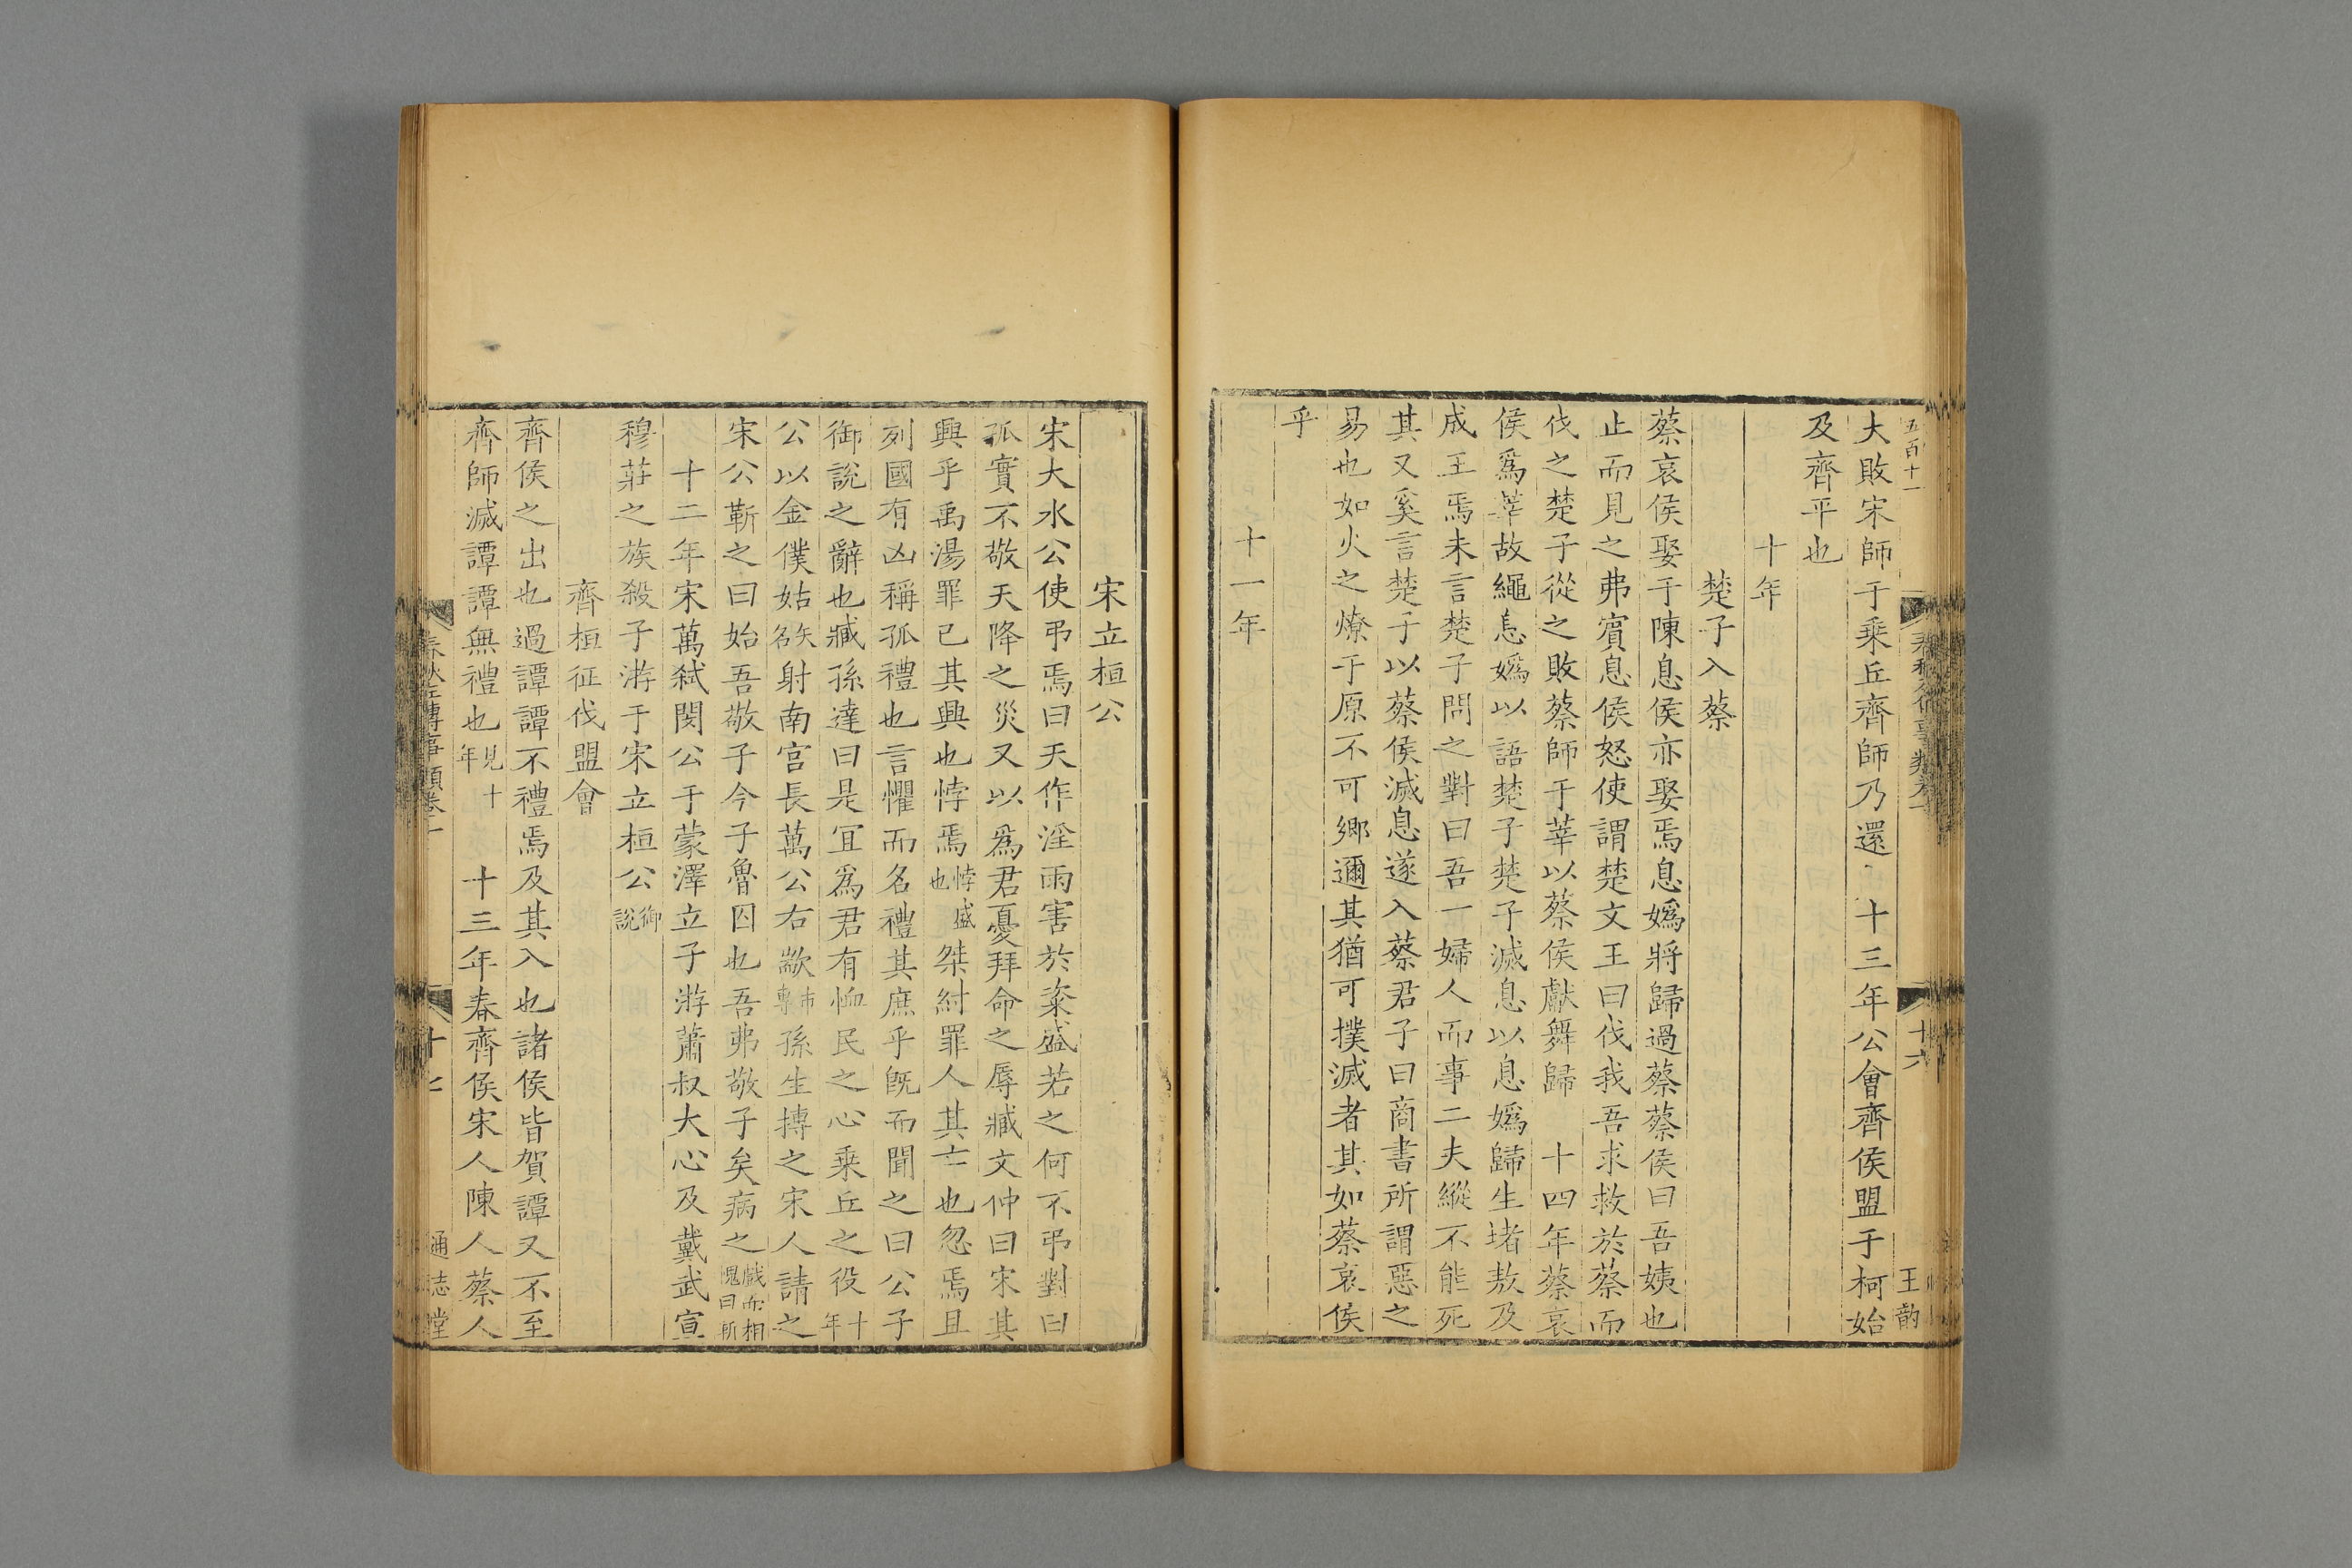 五百十一
十六
王韵
大敗宋師于乗丘齊師乃還 十三年公會齊侯盟于柯始
及齊平也
十年
楚子入蔡
蔡哀侯娶于陳息侯亦娶焉息嬀將歸過蔡蔡侯曰吾姨也
止而見之弗賔息侯怒使謂楚文王曰伐我吾求救於蔡而
伐之楚子從之敗蔡師于莘以蔡侯獻舞歸 十四年蔡哀
侯爲莘故繩息嬀以語楚子楚子滅息以息嬀歸生堵敖及
成王焉未言楚子問之對曰吾一婦人而事二夫縱不能死
其又奚言楚子以蔡侯滅息遂入蔡君子曰商書所謂惡之
易也如火之燎于原不可鄉邇其猶可撲滅者其如蔡哀侯
乎
十一年
宋立桓公
宋大水公使弔焉曰天作淫雨害於粢盛若之何不弔對曰
孤實不敬天降之災又以爲君憂拜命之辱臧文仲曰宋其
興乎禹湯罪已其興也悖焉悖盛也桀紂罪人其亡也忽焉且
列國有凶稱孤禮也言懼而名禮其庶乎旣而聞之曰公子
御說之辭也臧孫達曰是宜爲君有恤民之心乗丘之役十年
公以金僕姑矢名射南宮長萬公右歂市專孫生搏之宋人請之
宋公靳之曰始吾敬子今子魯囚也吾弗敬子矣病之戲而相愧曰靳
十二年宋萬弑閔公于蒙澤立子游蕭叔大心及戴武宣
穆莊之族殺子游于宋立桓公御說
齊桓征伐盟會
齊侯之出也過譚譚不禮焉及其入也諸侯皆賀譚又不至
齊師滅譚譚無禮也見十年 十三年春齊侯宋人陳人蔡人
春秋左傳事類卷一
十七
通志堂